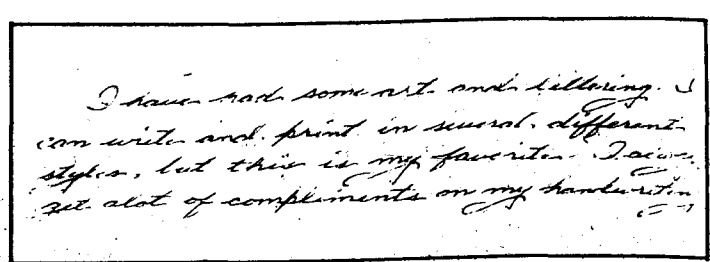 I have had some art and lettering. I
can write and print in several different
styles, but this is my favorite. I
get alot of compliments on my